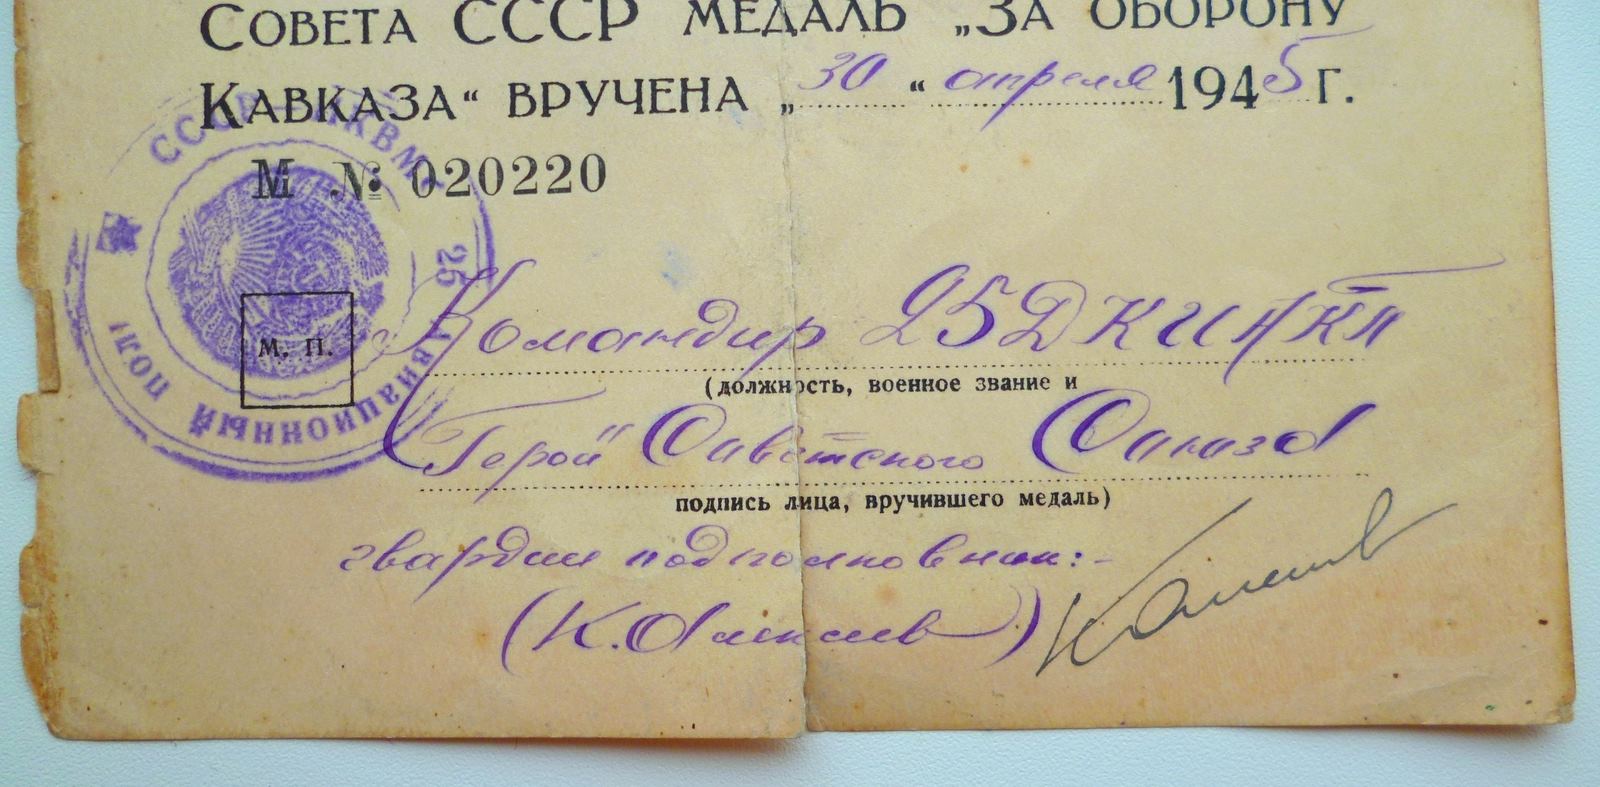 Совета СССР медаль „За оборону
Кавказа“ вручена „30“ апреля 1945 г.
М № 020220
СССР НКВМФ
25 Авиационный полк
М. П.
Командир 25
(должность, военное звание и
Герой Советского Союза
подпись лица, вручившего медаль)
гвардии подполковник:-
(К. Алексеев)